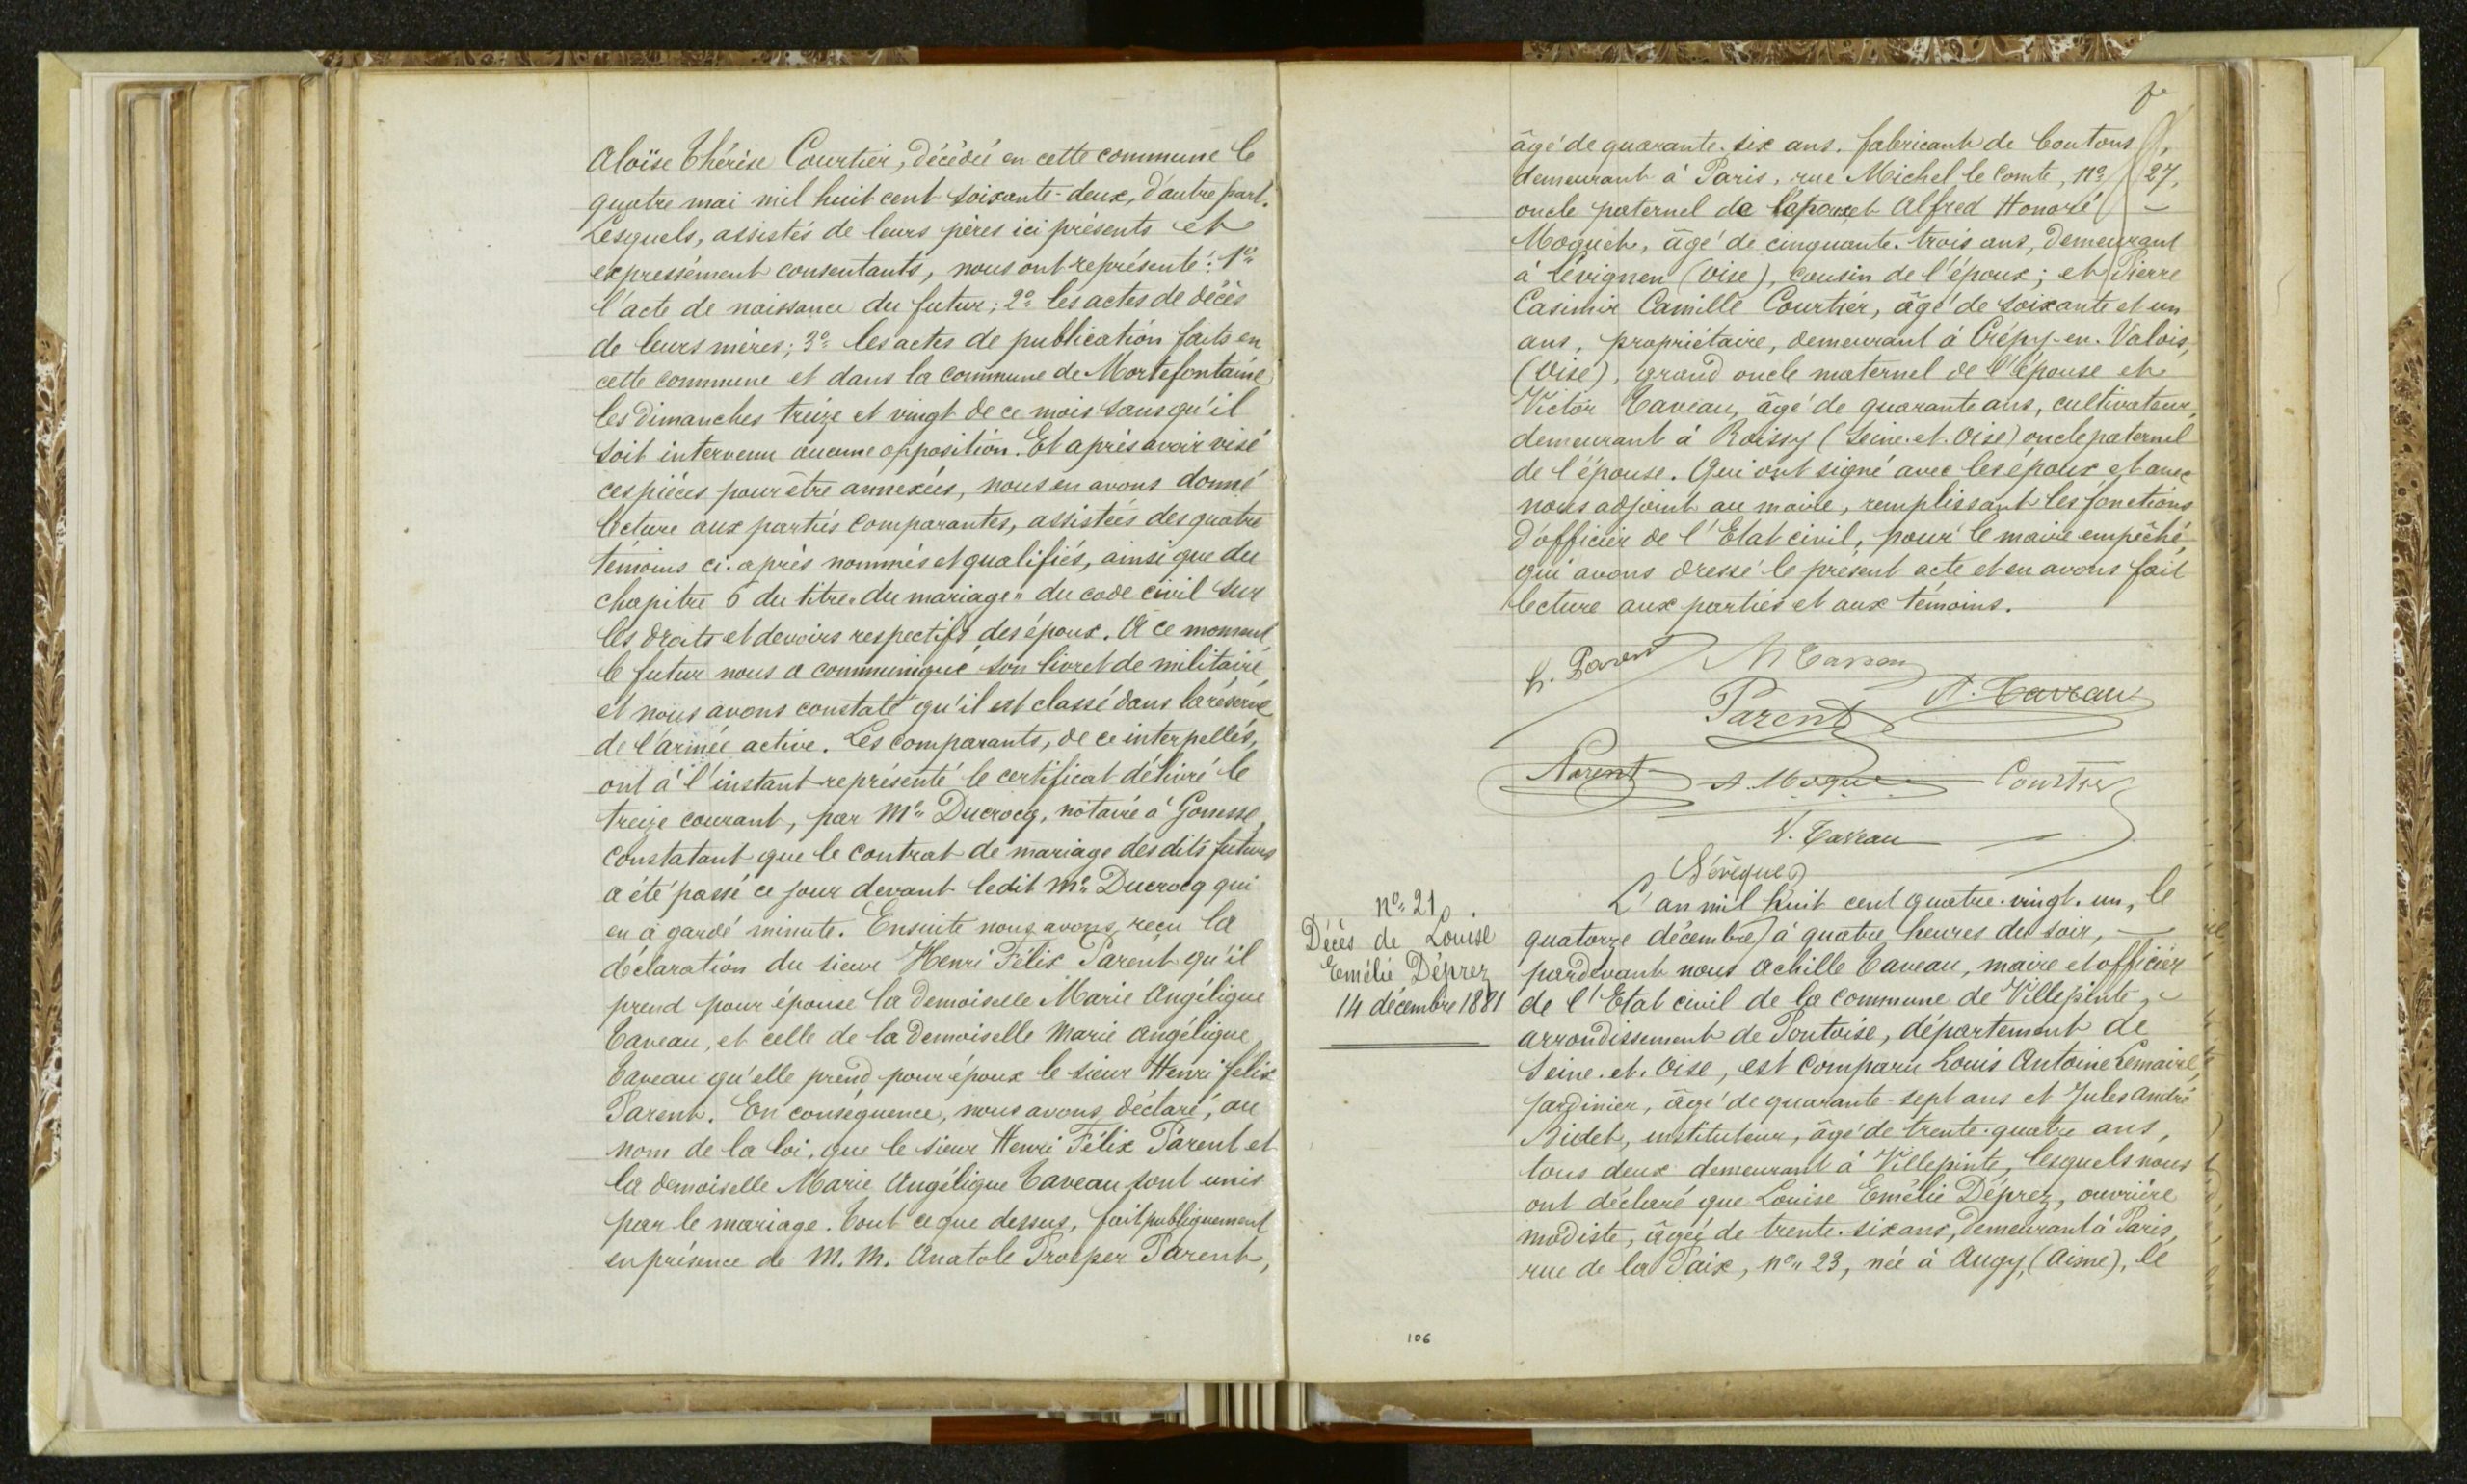 Aloïse Thérèse Courtier, décédée en cette commune le
quatre mai mil huit cent soixante-deux, d'autre part.
Lesquels, assistés de leurs pères ici présents et
expressément consentants, nous ont représenté: 1º
l'acte de naissance du futur; 2º les actes de décès
de leurs mères; 3º les actes de publication faits en
cette commune et dans la commune de Mortefontaine
les dimanches treize et vingt de ce mois sans qu'il
soit intervenu aucune opposition. Et après avoir visé
ces pièces pour être annexées, nous en avons donné
lecture aux parties comparantes, assistées des quatre
témoins ci-après nommés et qualifiés, ainsi que du
chapitre 6 du titre "du mariage" du code civil sur
les droits et devoirs respectifs des époux. A ce moment,
le futur nous a communiqué son livret de militaire,
et nous avons constaté qu'il est classé dans la réserve
de l'armée active. Les comparants, de ce interpellés,
ont à l'instant représenté le certificat délivré le
treize courant, par Me Ducrocq, notaire à Gonesse,
constatant que le contrat de mariage des dits futurs
a été passé ce jour devant ledit Me Ducrocq qui
en a gardé minute. Ensuite nous avons reçu la
déclaration du sieur Henri Félix Parent qu'il
prend pour épouse la demoiselle Marie Angélique
Taveau, et celle de la demoiselle Marie Angélique
Taveau qu'elle prend pour époux le sieur Henri Félix
Parent. En conséquence, nous avons déclaré, au
nom de la loi, que le sieur Henri Félix Parent et
la demoiselle Marie Angélique Taveau sont unis
par le mariage. Tout ce que dessus, fait publiquement
en présence de M. M. Anatole Prosper Parent,
âgé de quarante-six ans, fabricant de boutons,
demeurant à Paris, rue Michel le Comte, nº 27,
oncle paternel de l'époux et Alfred Honoré
Moquet, âgé de cinquante-trois ans, demeurant
à Lévignen (Oise), cousin de l'époux; et Pierre
Casimir Camille Courtier, âgé de soixante et un
ans, propriétaire, demeurant à Crépy-en-Valois,
(Oise), grand oncle maternel de l'épouse et
Victor Taveau, âgé de quarante ans, cultivateur,
demeurant à Roissy (Seine-et-Oise) oncle paternel
de l'épouse. Qui ont signé avec les époux et avec
nous adjoint au maire, remplissant les fonctions
d'officier de l'Etat civil, pour le maire empêché,
qui avons dressé le présent acte et en avons fait
lecture aux parties et aux témoins.
h. Parent M Taveau
Parent A. Taveau
Parent A. Moquet Courtier
V. Taveau
nº 21.
Décès de Louise
Emélie Déprez
14 décembre 1881
L'an mil huit cent quatre-vingt-un, le
quatorze décembre, à quatre heures du soir,
pardevant nous Achille Taveau, maire et officier
de l'Etat civil de la commune de Villepinte,
arrondissement de Pontoise, département de
Seine-et-Oise, est comparu Louis Antoine Lemaire,
jardinier, âgé de quarante-sept ans et Jules André
Bidet, instituteur, âgé de trente-quatre ans,
tous deux demeurant à Villepinte, lesquels nous
ont déclaré que Louise Emélie Déprez, ouvrière
modiste, âgée de trente-six ans, demeurant à Paris,
rue de la Paix, nº 23, née à Augy, (Aisne), le
106